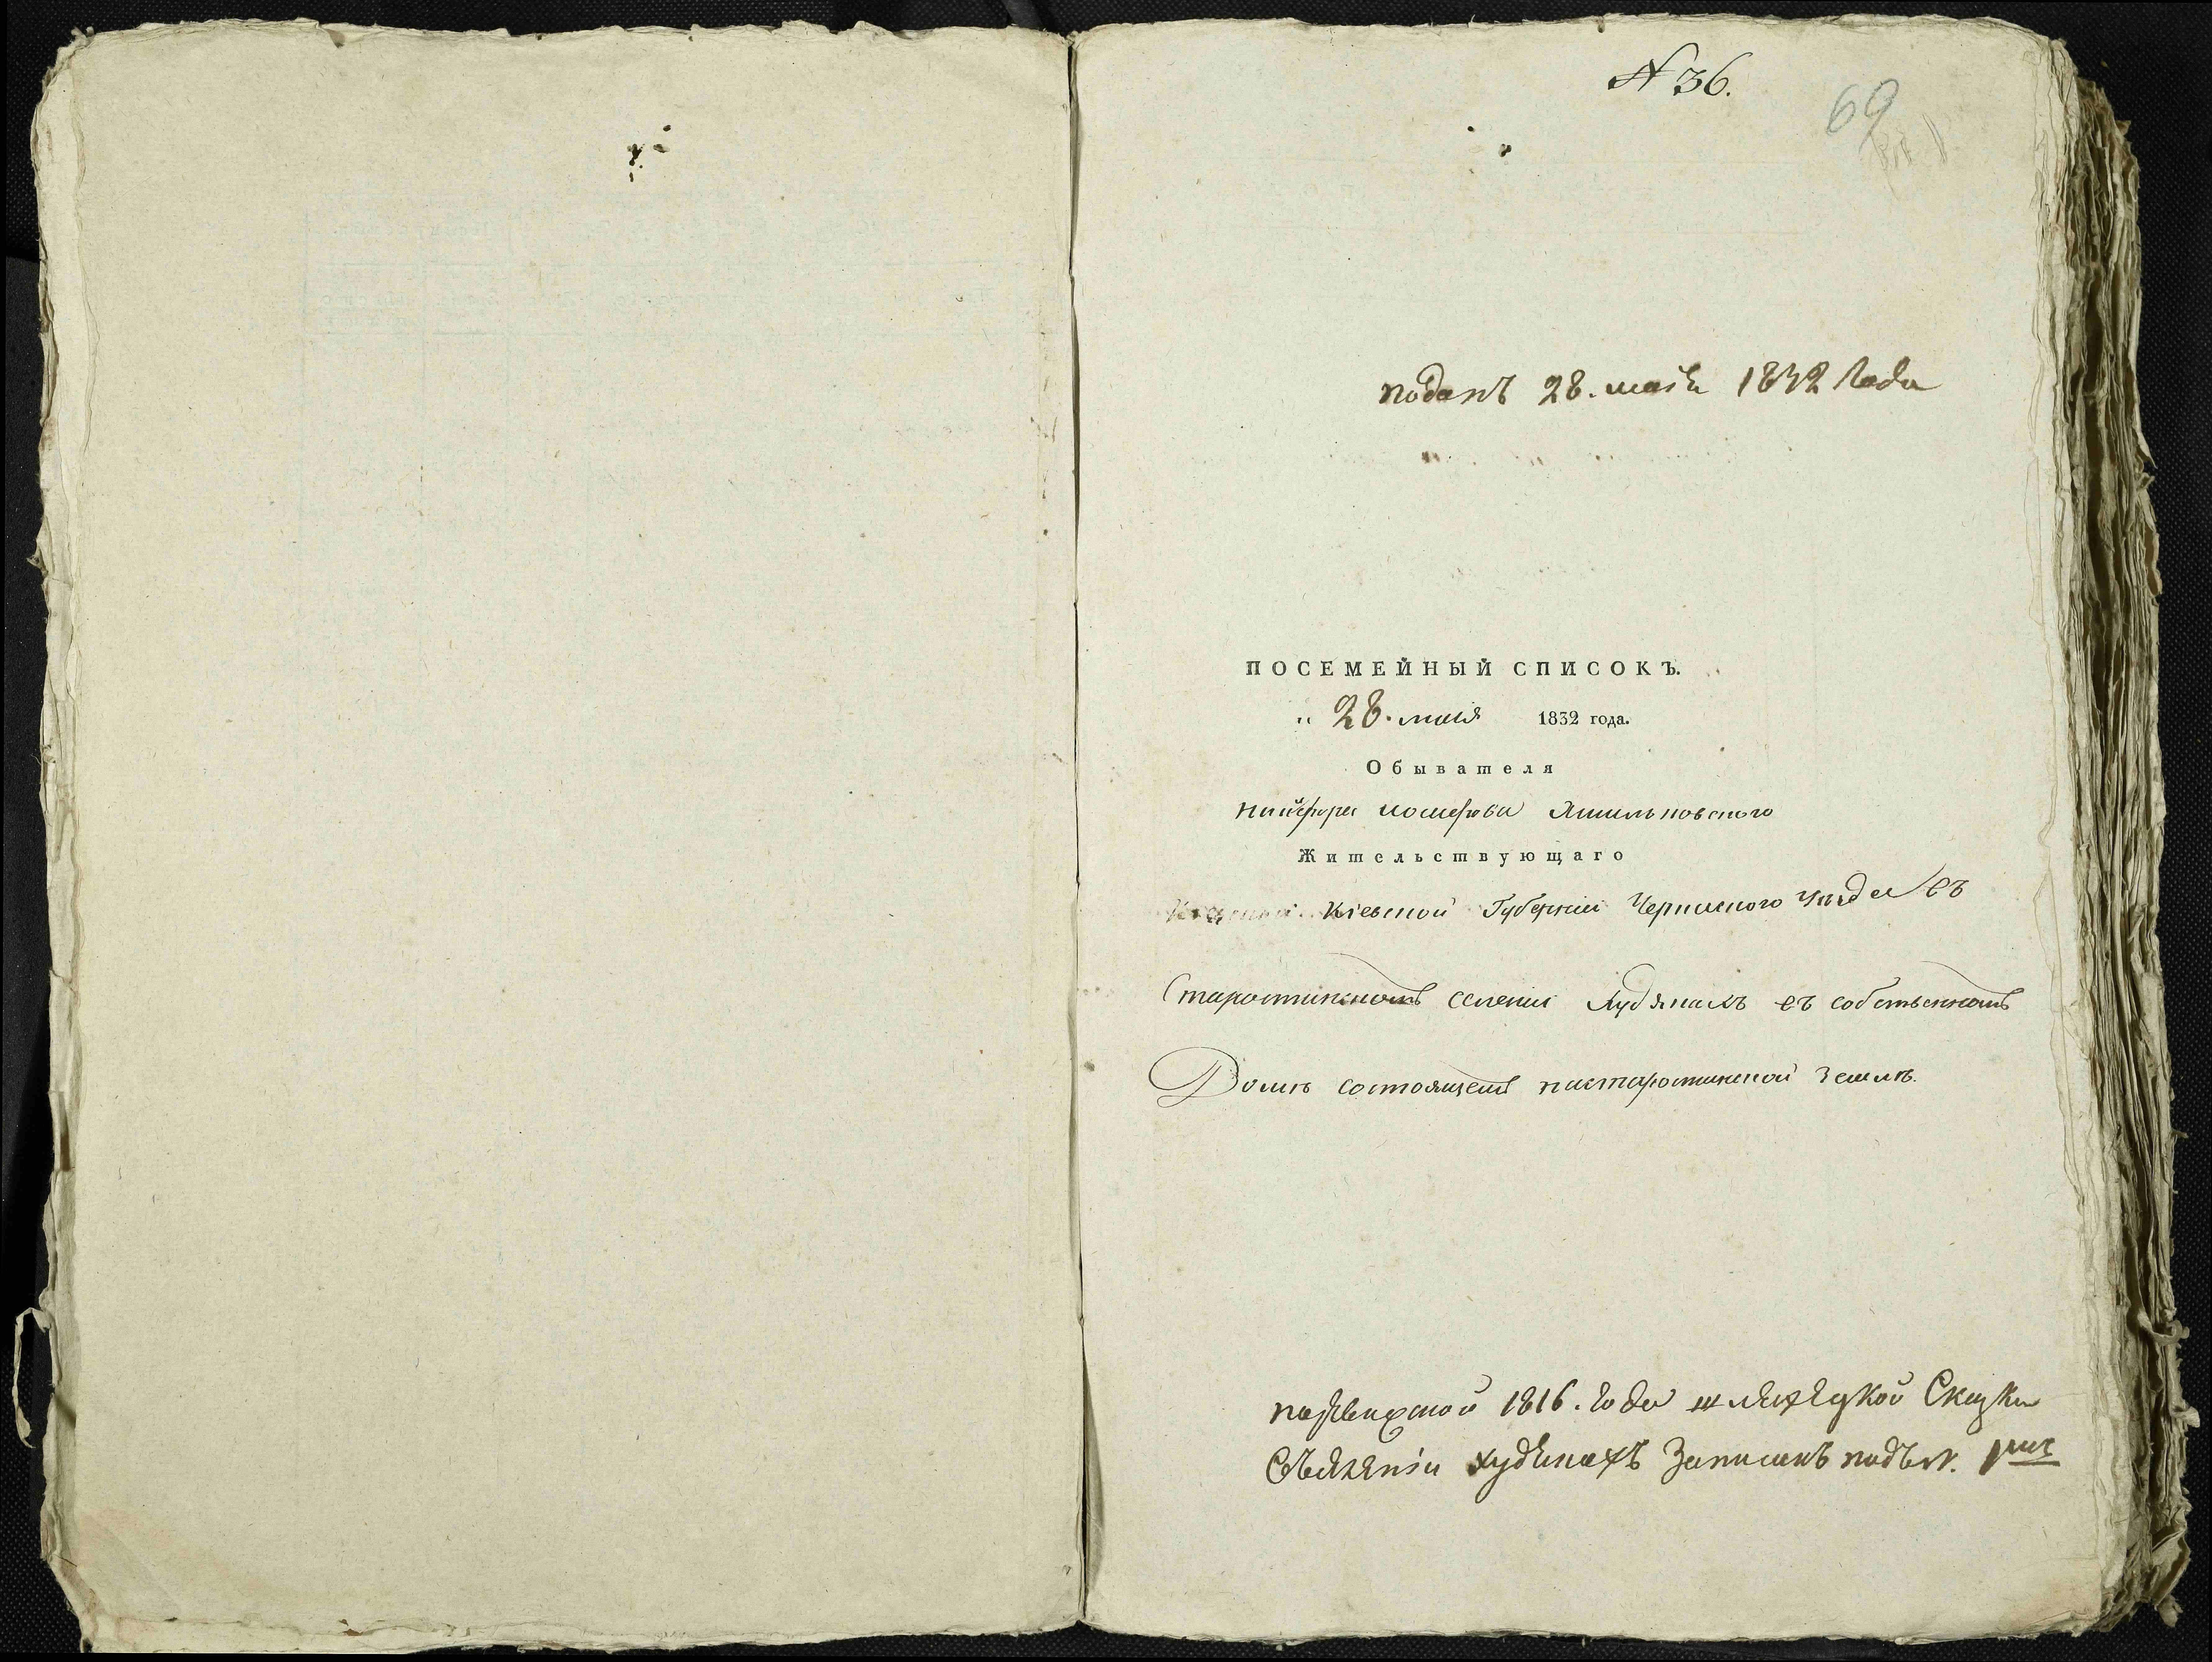 № 36.
69
поданъ 28. маія 1832 года
ПОСЕМЕЙНЫЙ СПИСОКЪ.
„ 28. маія 1832 года.
Обывателя
Жительствующаго
Кіевской Губерніи Черкаского уезда въ
Старостинскомъ селеніи Худякахъ въ собственномъ
Доме состоящемъ настаростинской земле.
поревизской 1816. года шляхецкой Скаски
Съеленіи худякахъ Записанъ подъ №.